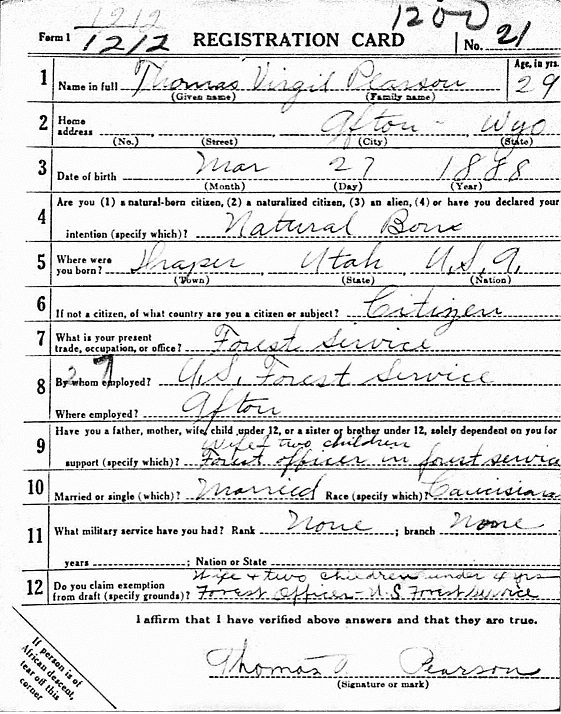 1212
1200
Form 1 1212 REGISTRATION CARD No. 21
1 Name in full Thomas Virgil Pearson Age, in yrs. 29
(Given name) (Family name)
2 Home address Afton - Wyo
(No.) (Street) (City) (State)
3 Date of birth Mar 27 1888
(Month) (Day) (Year)
4 Are you (1) a natural-born citizen, (2) a naturalized citizen, (3) an alien, (4) or have you declared your
intention (specify which)? Natural Born
5 Where were you born? Draper Utah U.S.A.
(Town) (State) (Nation)
6 If not a citizen, of what country are you a citizen or subject? Citizen
7 What is your present trade, occupation, or office? Forest Service
27
8 By whom employed? U.S. Forest Service
Where employed? Afton
9 Have you a father, mother, wife, child under 12, or a sister or brother under 12, solely dependent on you for
wife & two children
support (specify which)? Forest officer in forest service
10 Married or single (which)? Married Race (specify which)? Caucisian
11 What military service have you had? Rank None ; branch None
years ; Nation or State
Wife & two children under 4 yrs
12 Do you claim exemption from draft (specify grounds)? Forest Officer - U.S Forest Service
I affirm that I have verified above answers and that they are true.
Thomas V Pearson
(Signature or mark)
If person is of
African descent,
tear off this
corner